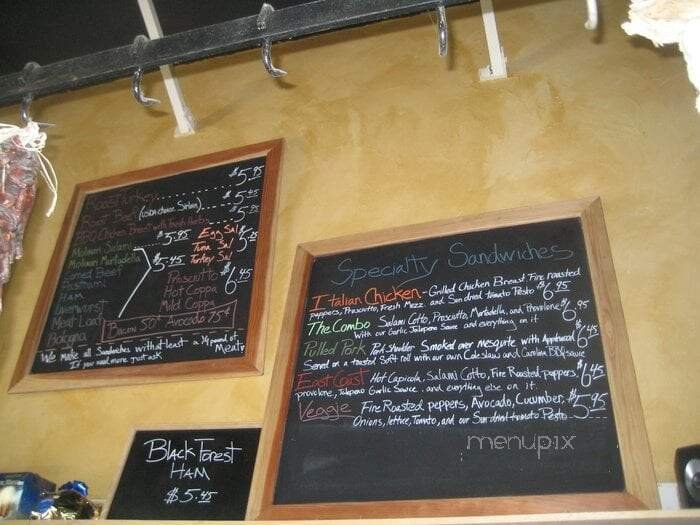 Roast Turkey $5.95
Roast Beef (USDA choice Sirloin) $5.45
BBQ Chicken Breast with fresh herbs $5.95
Molinari Salami $5.95
Molinari Mortadella
Corned Beef
Pastrami
Ham
Liverwurst
Meat Loaf
Bologna
$5.45
Egg Sal
Tuna Sal
Turkey Sal
$5.25
Prosciutto
Hot Coppa
Mild Coppa
$6.45
Bacon 50¢ Avocado 75¢
We make all Sandwiches with at least a ¼ pound of Meat
If you need more just ask
Black Forest
Ham
$5.45
Specialty Sandwiches
Italian Chicken - Grilled Chicken Breast Fire roasted
peppers, Prosciutto, Fresh Mozz. and Sun dried tomato Pesto $6.95
The Combo Salami Cotto, Prosciutto, Mortadella, and Provolone $6.95
with our Garlic Jalapeno Sauce and everything on it
Pulled Pork Pork Shoulder Smoked over mesquite with Applewood $6.45
Served on a toasted Soft roll with our own Coleslaw and Carolina BBQ sauce
East Coast Hot Capicola, Salami Cotto, Fire Roasted peppers $6.45
provolone, Jalapeno Garlic Sauce. and everything else on it.
Veggie Fire Roasted peppers, Avocado, Cucumber, $5.95
Onions, lettuce, Tomato, and our Sun dried tomato Pesto
menupix